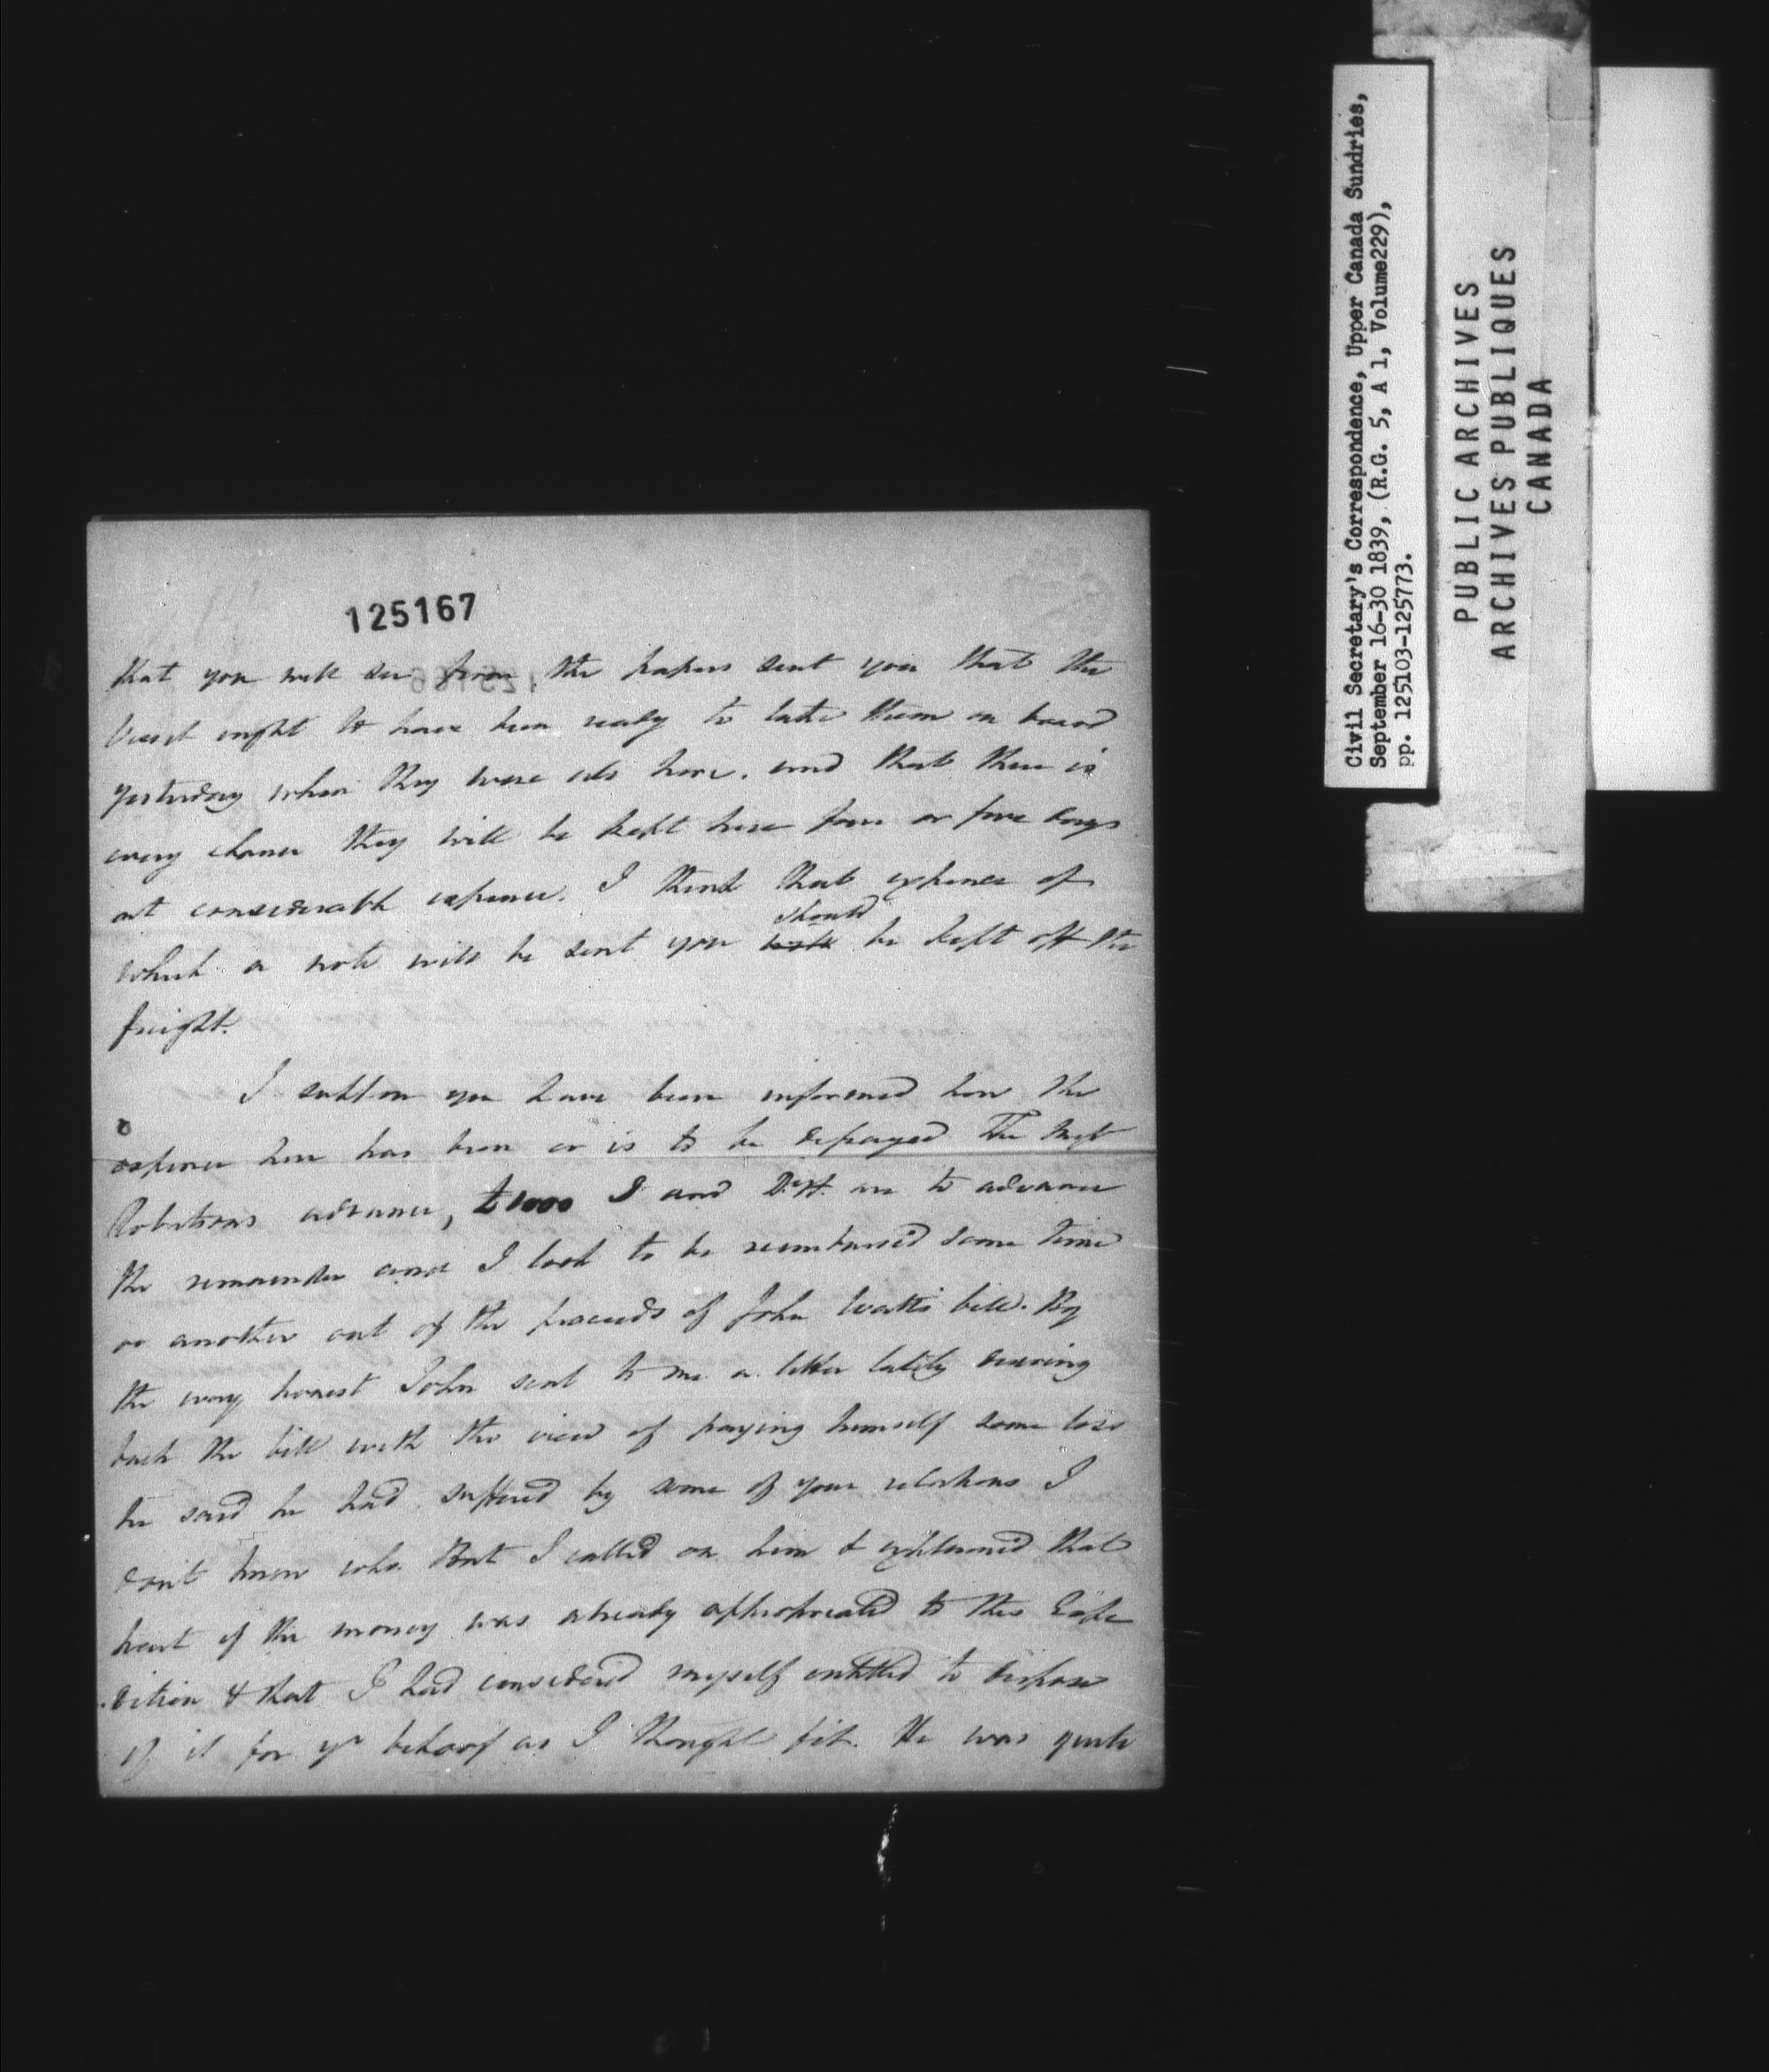 125167
that you will see from the papers sent you that the
Vessel ought to have been ready to take them on board
yesterday when they were all here. and that there is
every chance they will be kept here four or five days
at considerable expence. I think that expence of
should
which a note will be sent you be kept off the
freight.
I suppose you have been informed how the
expence here has been or is to be defrayed The
Robertsons advance, £1000 I and are to advance
the remainder and I look to be reimbursed some time
or another out of the proceeds of John Watts bill. By
the way honest John sent to me a letter lately desiring
back the bill with the view of paying himself some loss
he said he had suffered by some of your relations I
don't know who. But I called on him & explained that
part of the money was already appropriated to this Expe
dition & that I had considered myself entitled to dispose
of it for yr behoof as I thought fit. He was quite
Civil Secretary's Correspondence, Upper Canada Sundries,
September 16-30 1839, (R.G. 5, A 1, Volume229),
pp. 125103-125773.
PUBLIC ARCHIVES
ARCHIVES PUBLIQUES
CANADA